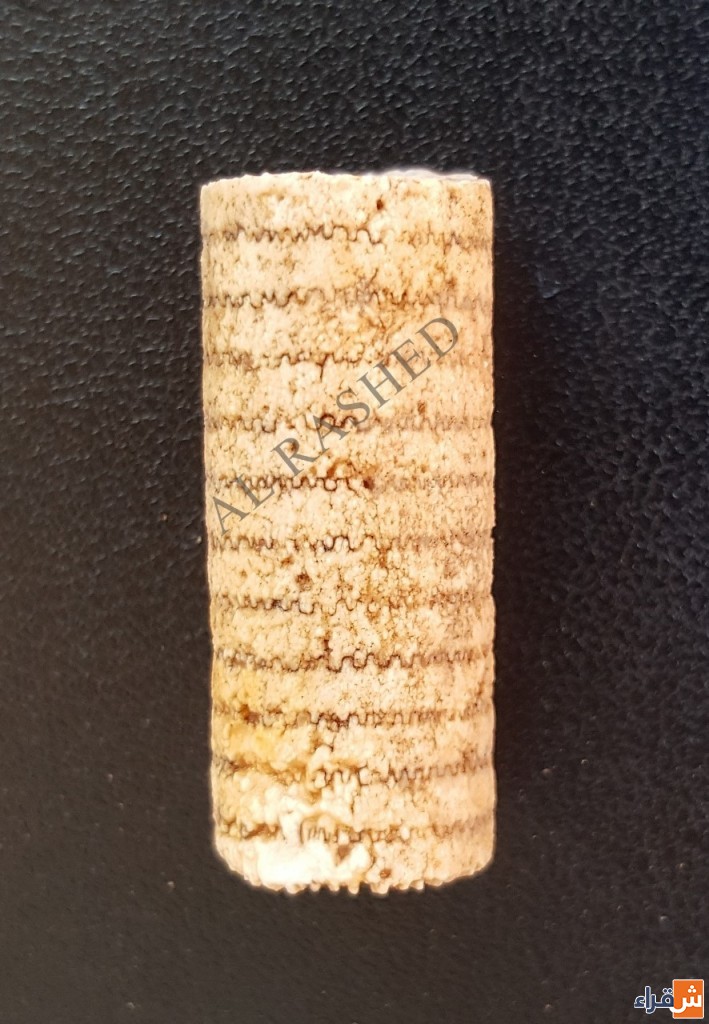 AL RASHED
شقراء